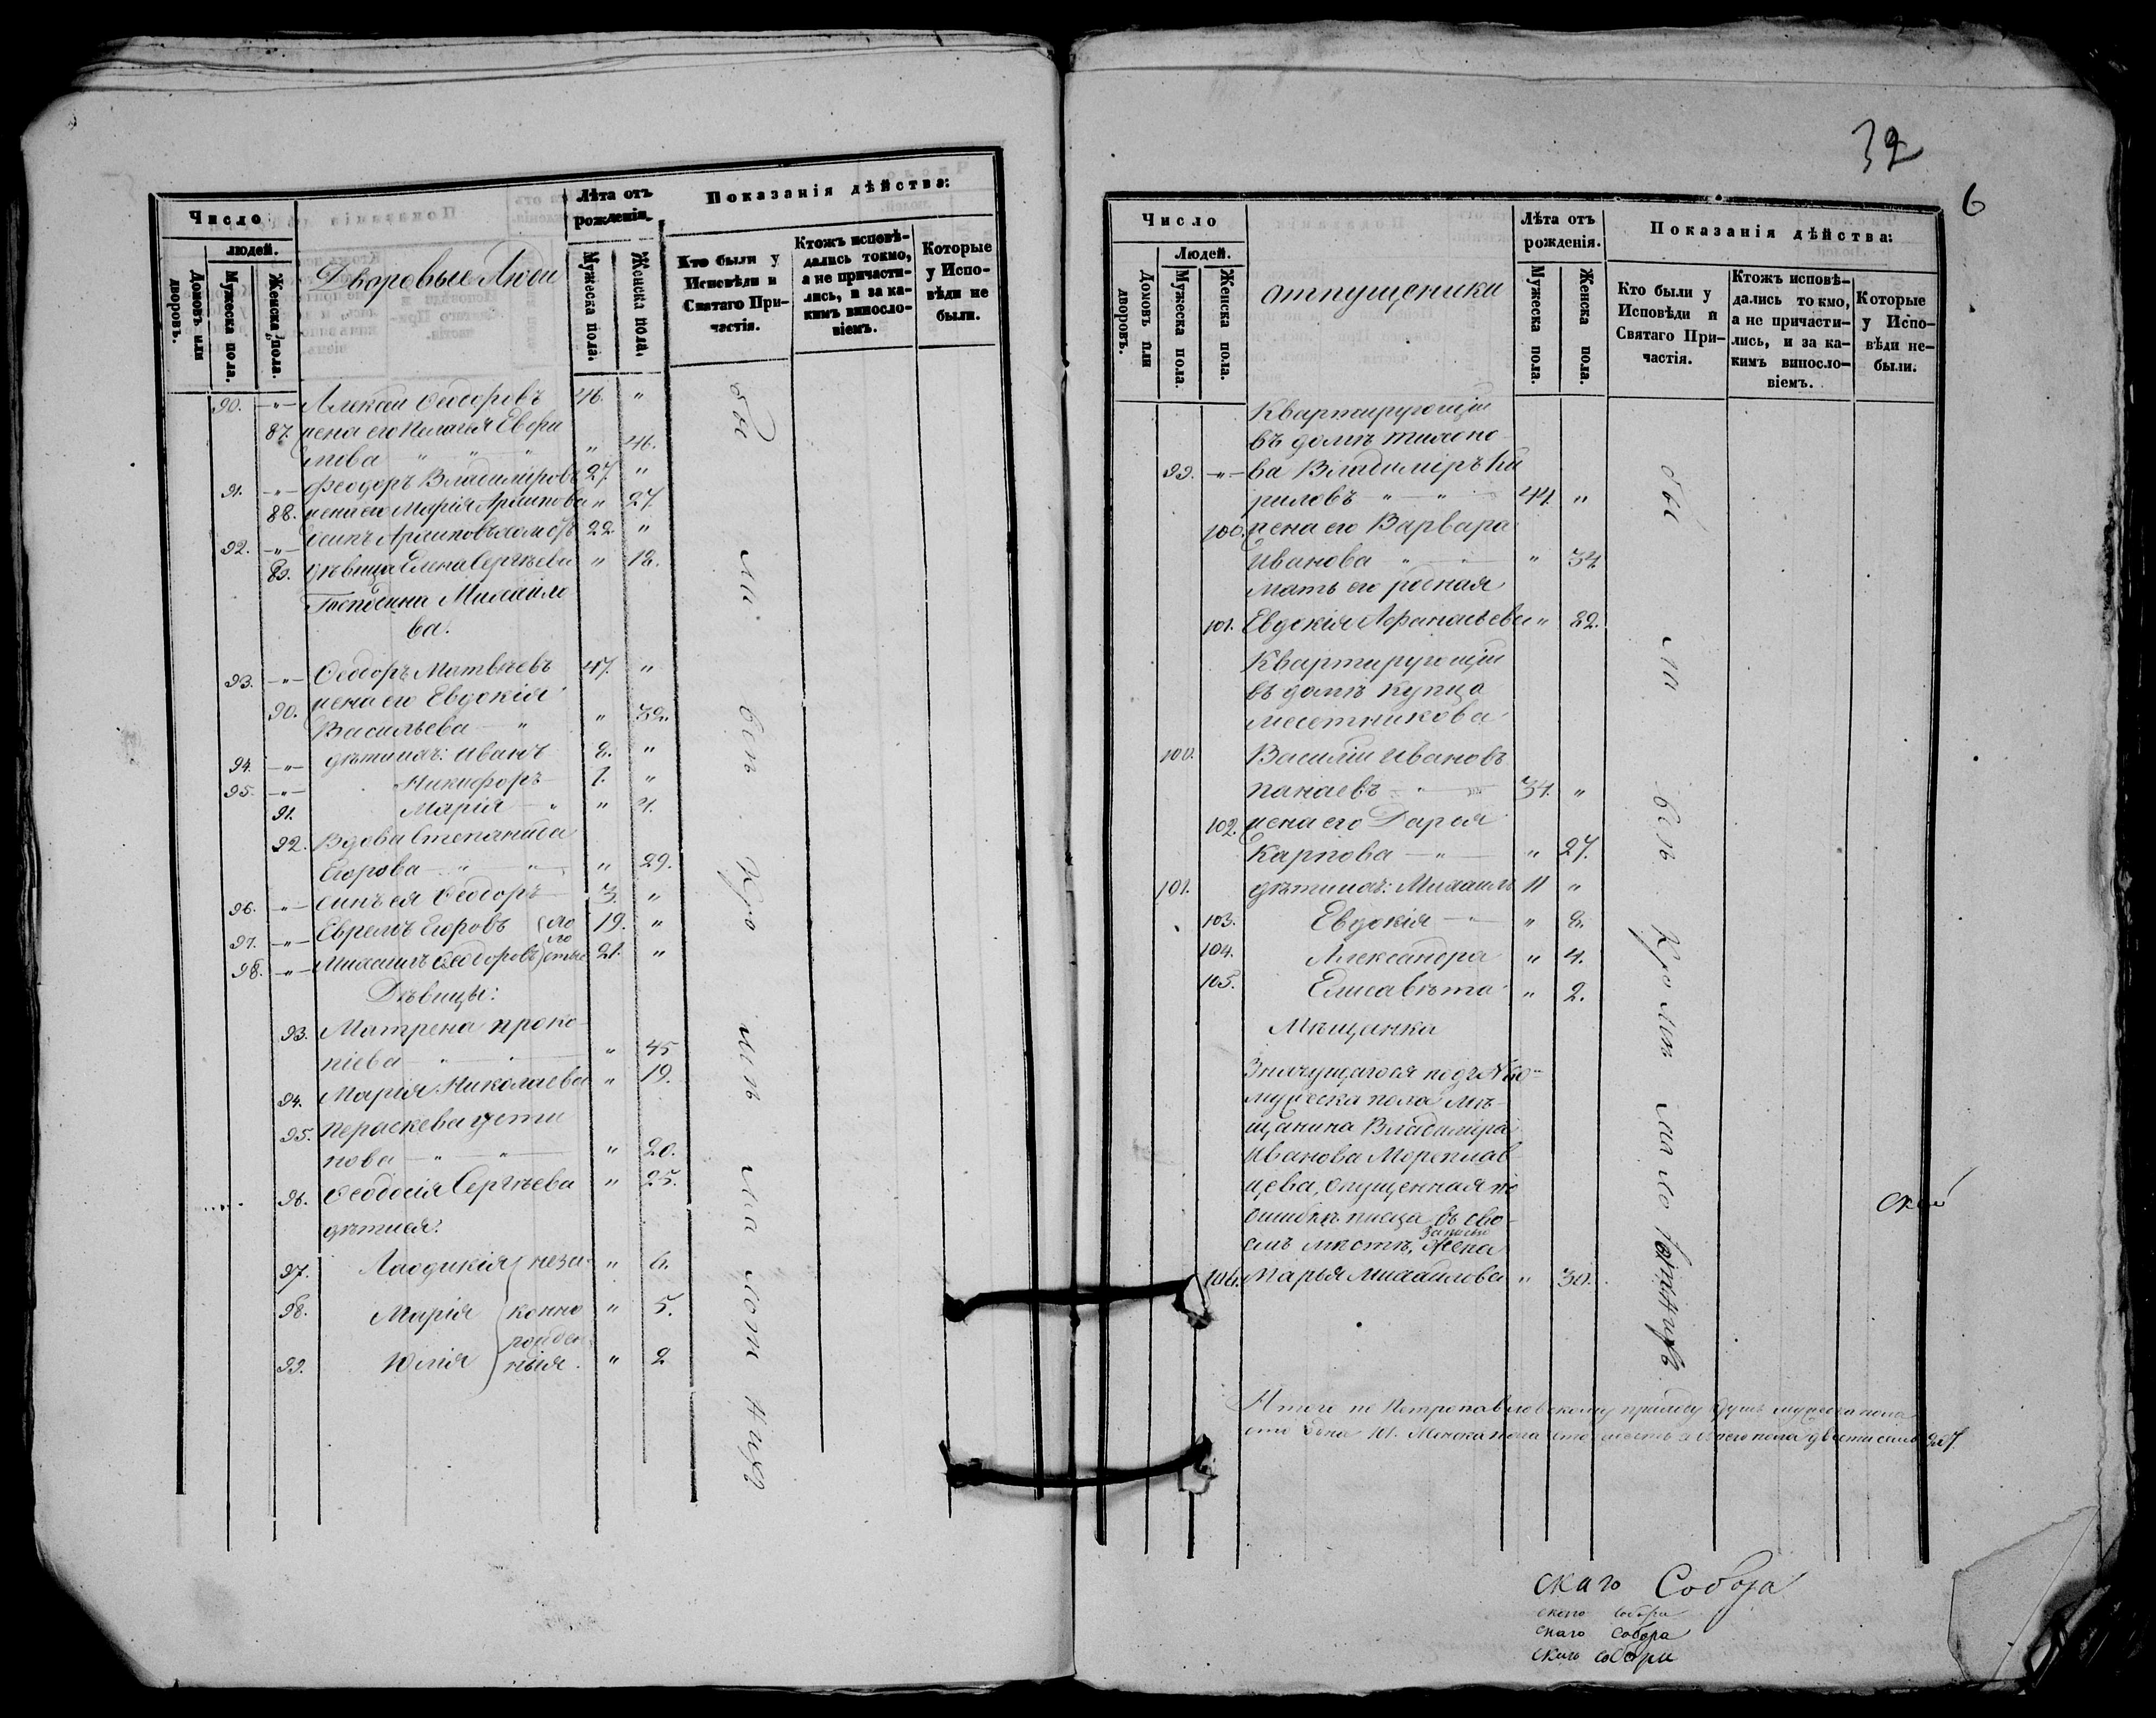 Число
людей.
Домовъ или дворовъ.
Мужеска пола.
Женска пола.
Дворовые Люди
Лѣта отъ рожденія.
Мужеска пола.
Женска пола.
Показанія дѣйства:
Кто были у Исповѣди и Святаго Причастія.
Ктожъ исповѣдались токмо, а не причастились, и за какимъ винословіемъ.
Которые у Исповѣди не были.
90. -"- Алексѣй Ѳеодоровъ 46. "
87. жена его Пелагея Евфи
мова " " " " 46.
91. -"- Феодоръ Владимировъ 27. "
88. жена его Марія Архипова " 27.
92. -"- Осипъ Архиповъ 22. "
89. дѣвица Елена Сергѣева " 18.
Господина Михайло
ва.
93. -"- Ѳеодоръ Матвѣевъ 47. "
90. жена его Евдокія
Васильева " " 32.
94. -"- дѣти ихъ: Иванъ 8. "
95. -"- Никифоръ 7. "
91. Марія " " 4.
92. Вдова Степанида
Егорова " " " 29.
96. -"- сынъ ея Ѳеодоръ 3. "
97. -"- Ефремъ Егоровъ 19. "
98. -"- Михаилъ Ѳеодоровъ 21. "
Дѣвицы:
93. Матрена Проко
піева " " " 45
94. Марія Николаева " 19.
95. Пераскева Усти
нова " " " 20.
96. Ѳеодосія Сергѣева " 25.
дѣти ея:
97. Лаодикія неза " 6.
98. Марія конно " 5.
рожден
99. Юлія ныя. " 2
бы ли всѣ кромѣ малолѣтнихъ
32
6
Число
Людей.
Домовъ или дворовъ.
Мужеска пола.
Женска пола.
отпущеники
Лѣта отъ рожденія.
Мужеска пола.
Женска пола.
Показанія дѣйства:
Кто были у Исповѣди и Святаго Причастія.
Ктожъ исповѣдались токмо, а не причастились, и за какимъ винословіемъ.
Которые у Исповѣди небыли.
Квартирующій
въ домѣ Тихоно
99. -"- ва Владимиръ Ки
риловъ " " 44. "
100. жена его Варвара
Иванова " " " 34
мать его родная
101. Евдокія Афанасьева " 82.
Квартирующій
въ домѣ купца
100. Василій Ивановъ
Панаевъ " 34. "
102. жена его Дарья
Карпова " " 27.
101. дѣти ихъ: Михаилъ 11 "
103. Евдокія " " 8.
104. Александра " 4.
105. Елисавѣта " 2.
Мѣщанка
Значущагося подъ №
мужеска пола мѣ
щанина Владимира
Иванова Мореплав
цева, опущенная по
ошибкѣ писца въ сво
емъ мѣстѣ, жена
106. Марья Михайлова " 30.
бы ли всѣ кромѣ малолѣтнихъ
Итого по Петропавловскому приходу душъ мужеска пола
сто одна 101. Женска пола сто шесть а обоего пола двѣсти семь 207
скаго Собора
скаго собора
скаго собора
скаго собора